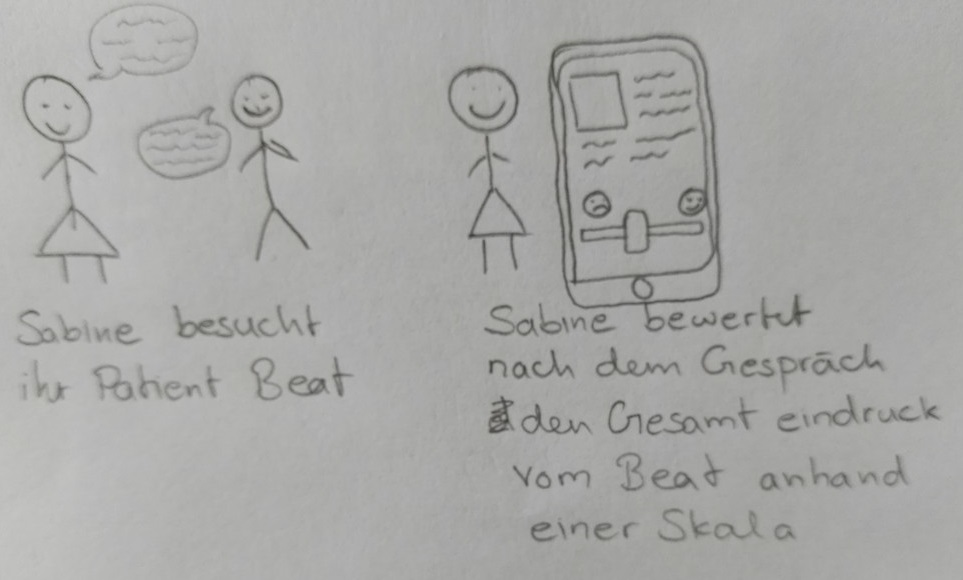 Sabine besucht
ihr Patient Beat
Sabine bewertet
nach dem Gespräch
den Gesamt eindruck
vom Beat anhand
einer Skala